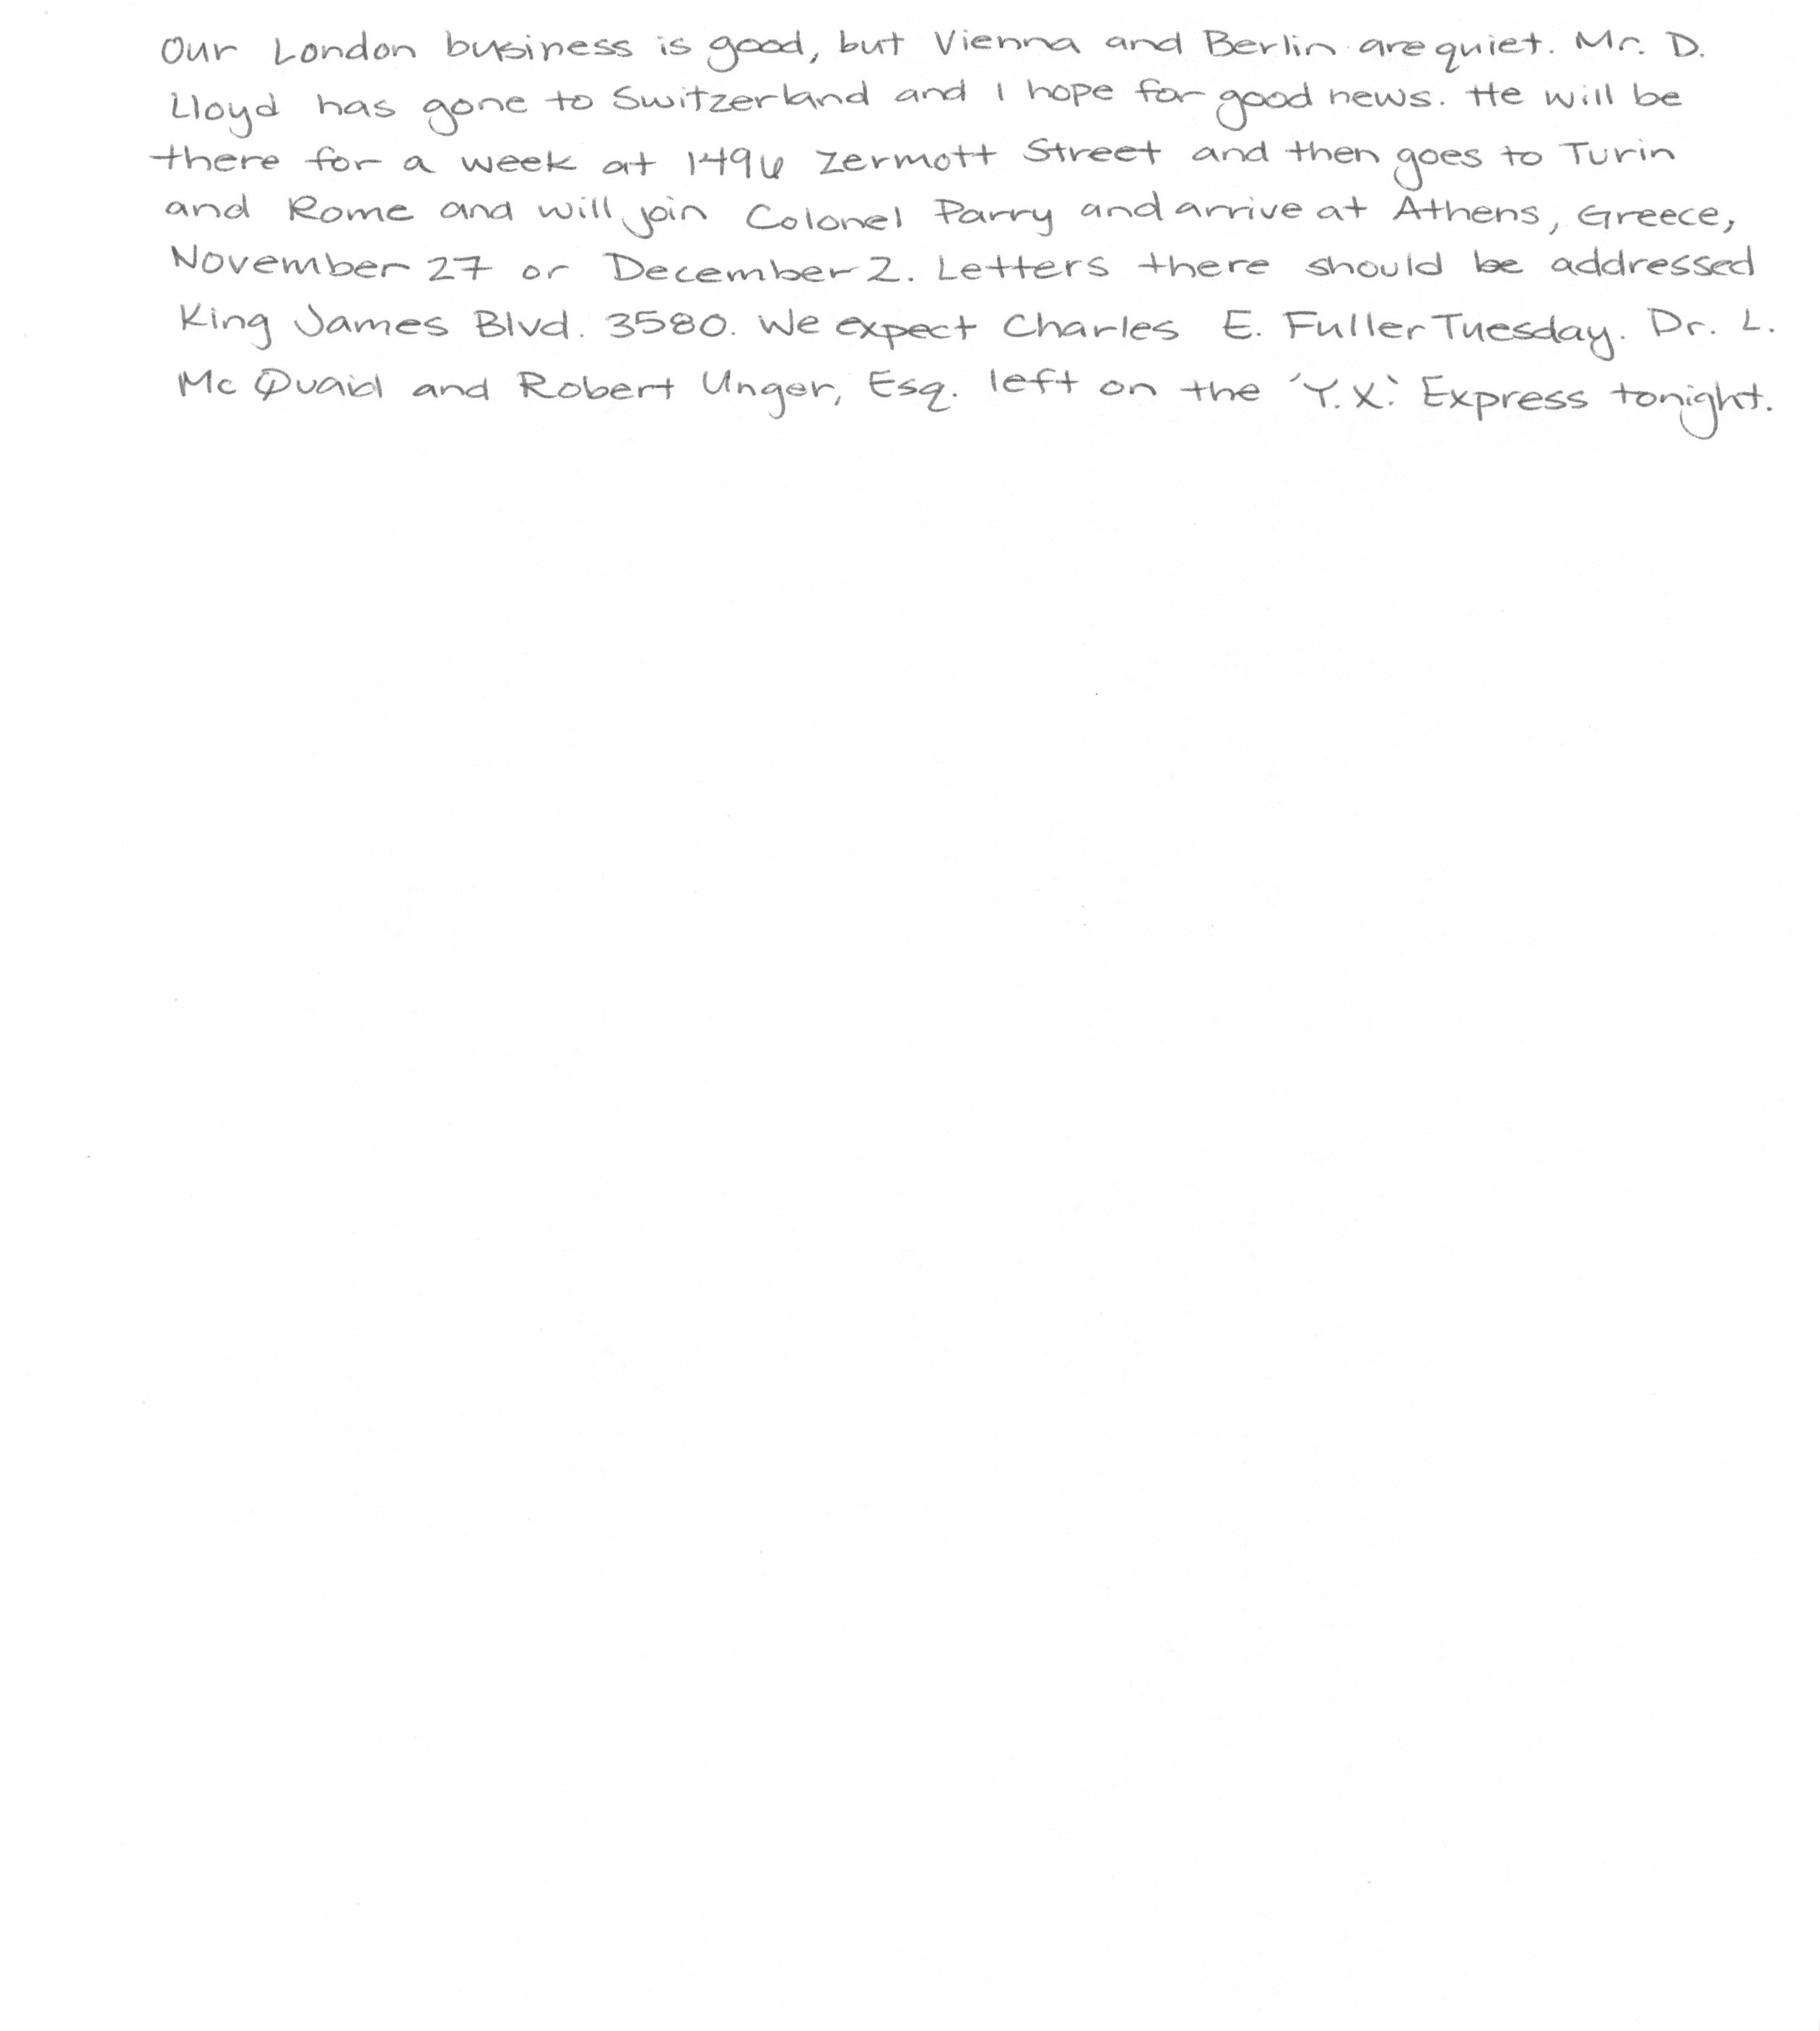 Our London business is good, but Vienna and Berlin are quiet. Mr. D.
Lloyd has gone to Switzerland and I hope for good news. He will be
there for a week at 1496 Zermott Street and then goes to Turin
and Rome and will join Colonel Parry and arrive at Athens, Greece,
November 27 or December 2. Letters there should be addressed
King James Blvd. 3580. We expect Charles E. Fuller Tuesday. Dr. L.
Mc Quaid and Robert Unger, Esq. left on the 'Y.X.' Express tonight.